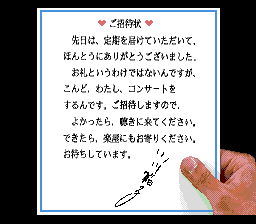 ❤ご招待状❤
先日は、定期を届けていただいて、
ほんとうにありがとうございました。
お礼というわけではないんですが、
こんど、わたし、コンサートを
するんです。ご招待しますので、
よかったら、聴きに来てください。
できたら、楽屋にもお寄りください。
お待ちしています。